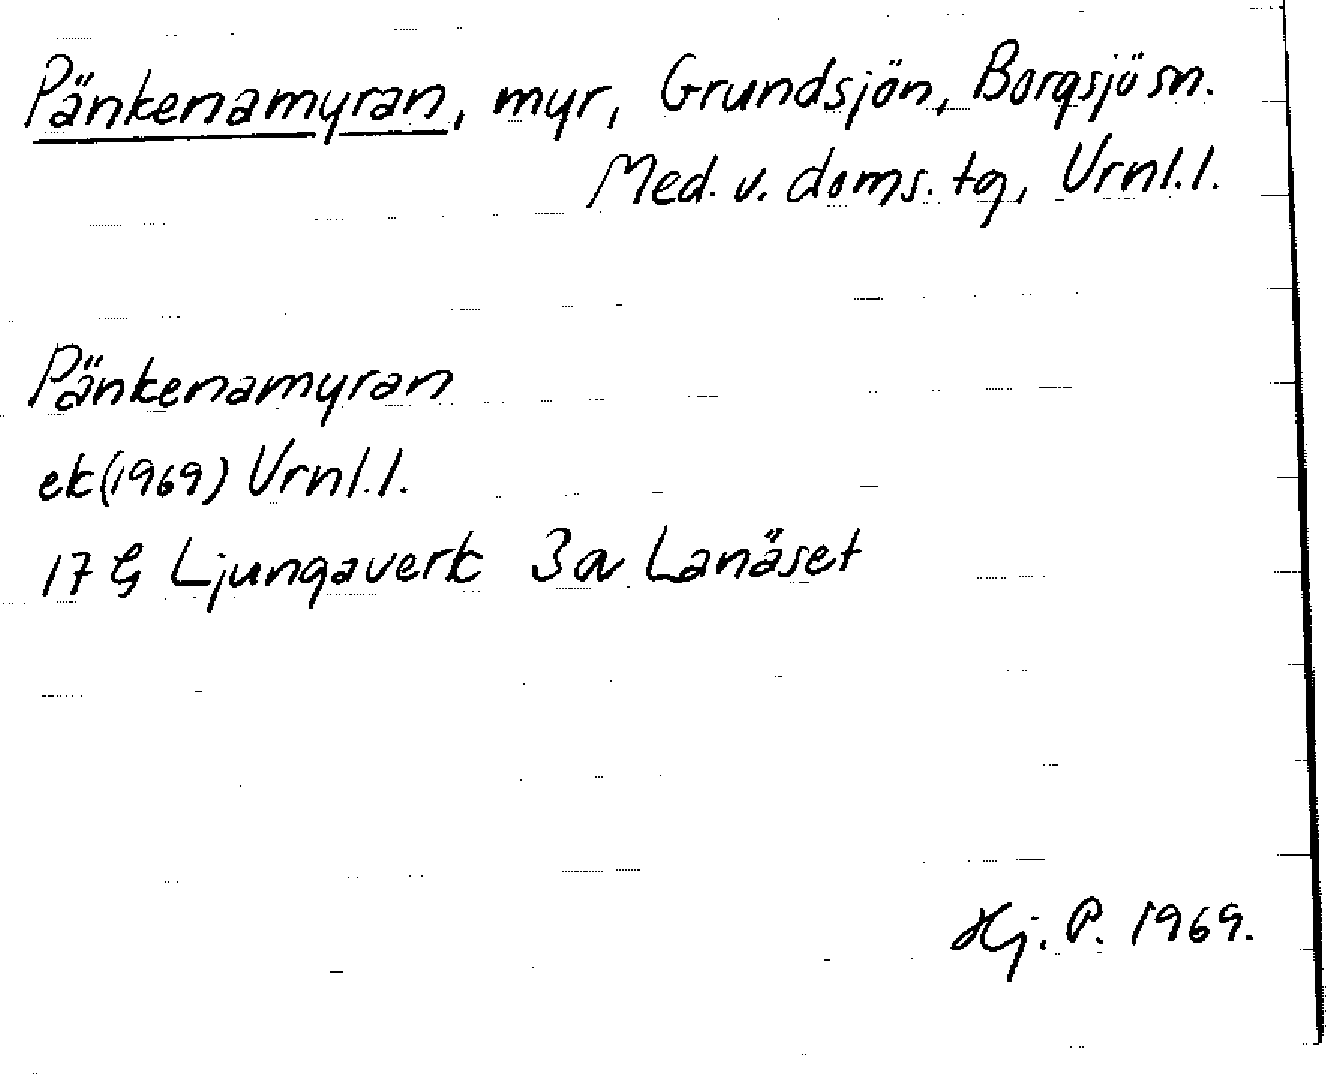 Pänkenamyran, myr, Grundsjön, Borgsjö sn.
Med. v. doms. tg, Vrnl.l.
Pänkenamyran
ek (1969) Vrnl.l.
17 G Ljungaverk 3a Lanäset
Hj. P. 1969.